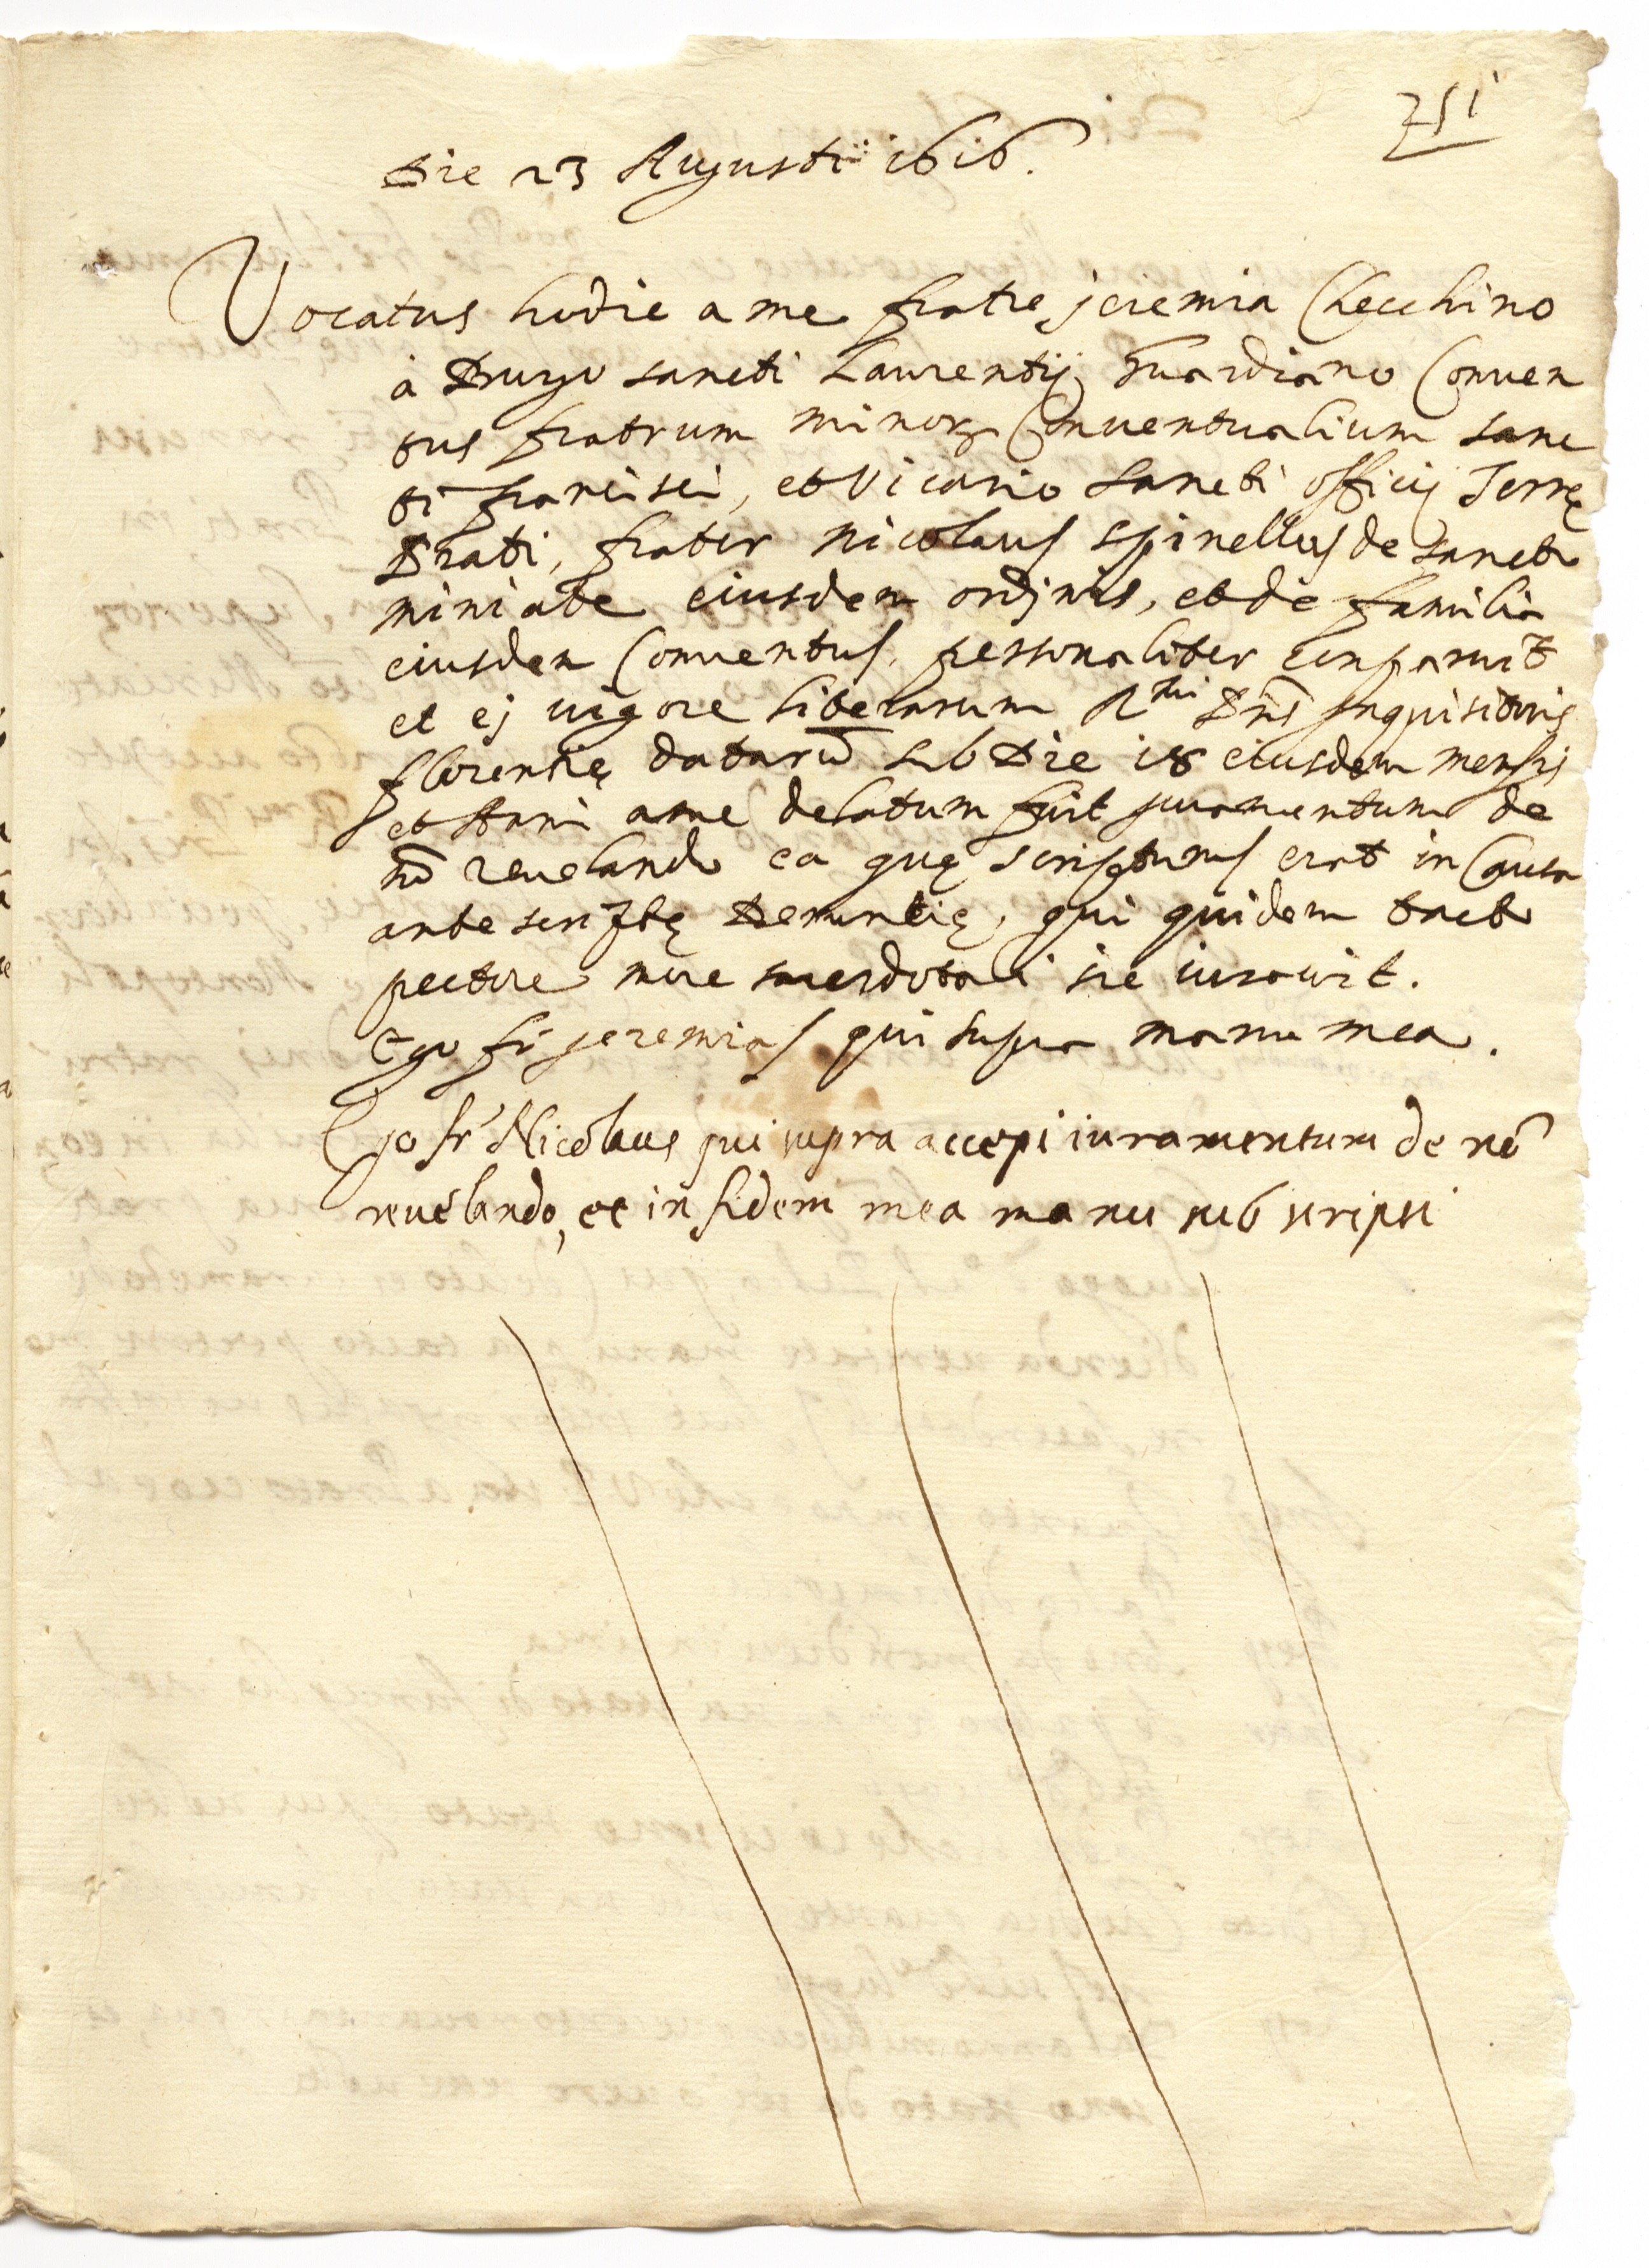 251
Die 23 Augusti 1616.
Vocatus hodie a me fratre jeremia Checchino
à Burgo sancti Laurentij Guardiano Conuen
tus fratrum minorum Conuentualium sanc
ti francisci, et Vicario sancti officij Terrę
Prati, frater nicolaus spinellus de sancto
miniate eiusdem ordinis, et de familia
eiusdem Conuentus, personaliter comparuit
et ei uigore literarum R.mi Dñi Inquisitoris
florentię datarū sub Die 18 eiusdem mensis
et Anni a me delatum fuit juramentum de
nō reuelando ea quę scripturus erat in Causa
antescriptę Denuntię, qui quidem tacto
pectore more sacerdotali sic iurauit.
Ego fr jeremias qui supra manu mea.
Ego fr Nicolaus qui supra accepi iuramentum de nō
reuelando, et in fidem mea manu subscripsi